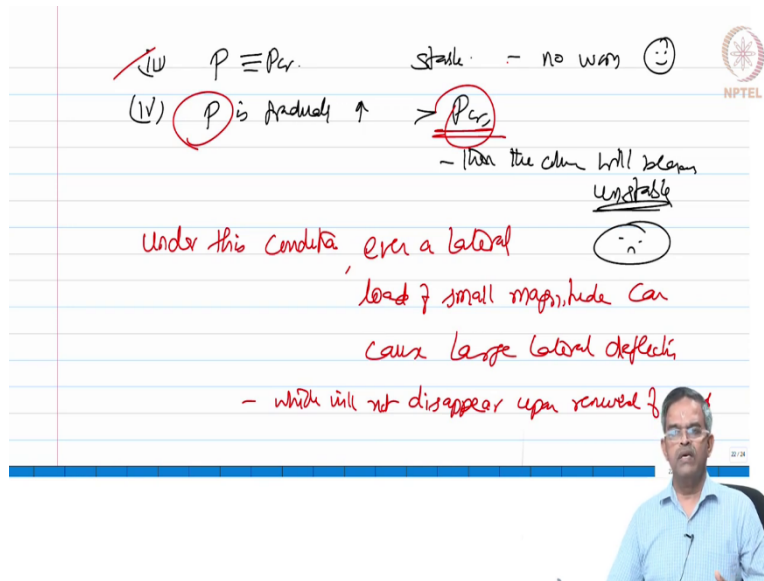 (iii) P ≡ Pcr. stable. - no worry
NPTEL
(iv) P is gradually ↑ > Pcr,
- then the column will become
unstable
Under this condition, even a lateral
load of small magnitude can
cause large lateral deflection
- which will not disappear upon removal of
22 / 24